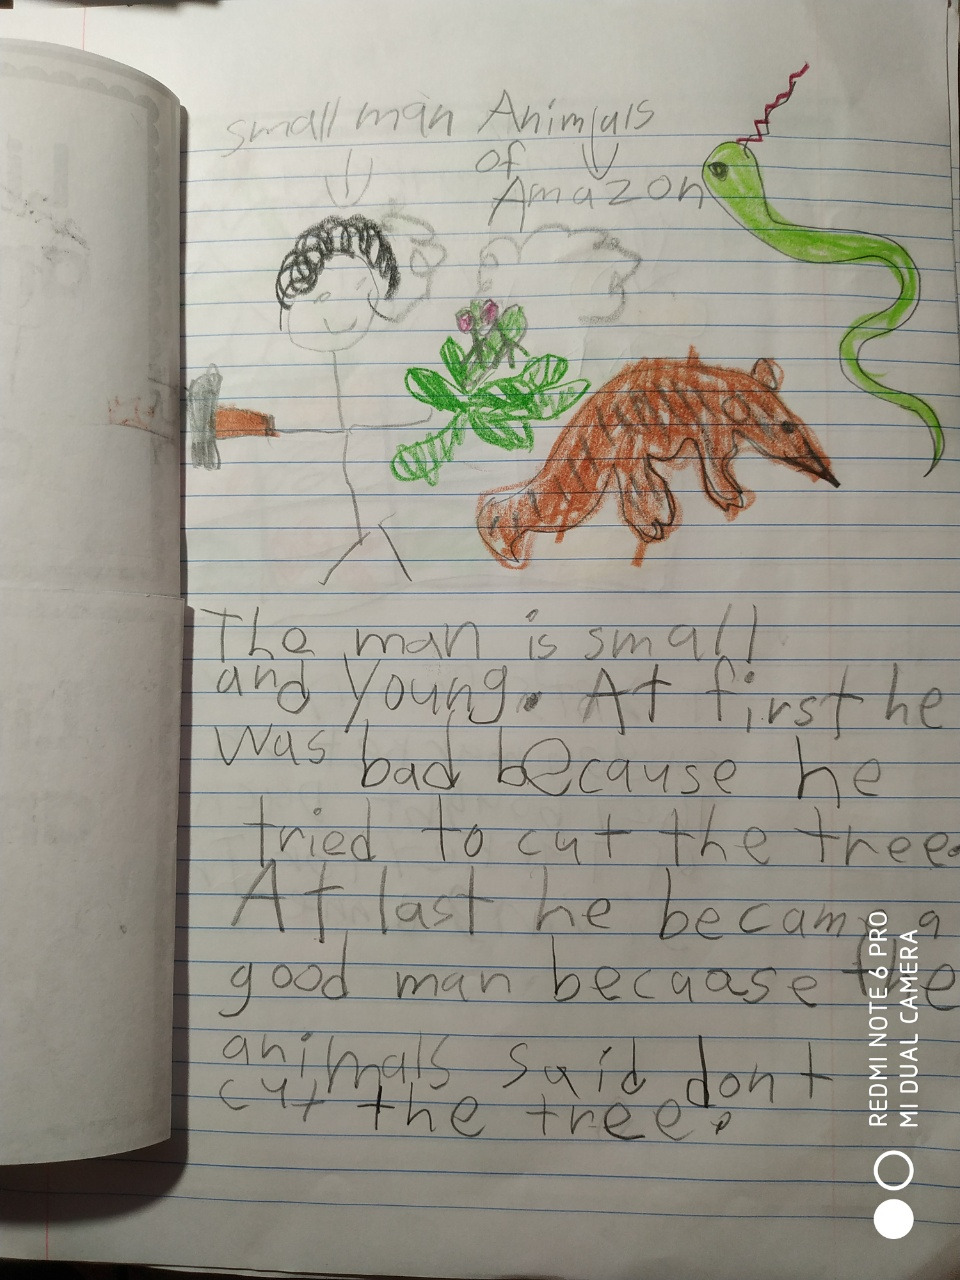 small man Animals
of
Amazon
The man is small
and young. At first he
was bad because he
tried to cut the tree.
At last he became a
good man becuase the
animals said dont
cut the tree.
REDMI NOTE 6 PRO
MI DUAL CAMERA